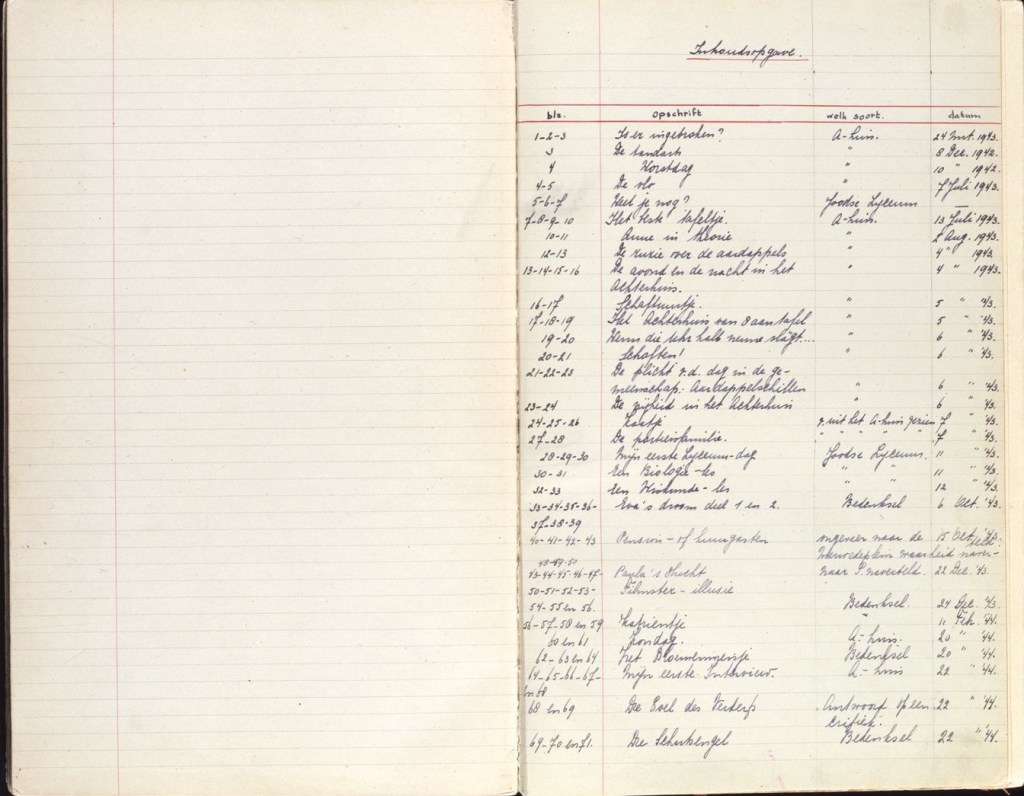 Inhoudsopgave.
blz. opschrift welk soort. datum
1-2-3 Is er ingebroken? A-huis. 24 Mrt. 1943.
3 De tandarts " 8 Dec. 1942.
4 Worstdag " 10 " 1942.
4-5 De vlo " 7 Juli 1943.
5-6-7 Weet je nog? Joodse Lyceum —
7-8-9-10 Het beste tafeltje. A-huis. 13 Juli 1943.
10-11 Anne in theorie " 2 Aug. 1943.
12-13 De ruzie over de aardappels " 4 " 1943.
13-14-15-16 De avond en de nacht in het " 4 " 1943.
Achterhuis.
16-17 Schaftuurtje. " 5 " '43.
17-18-19 Het Achterhuis van 8 aan tafel " 5 " '43.
19-20 Wenn die Uhr halb neune slägt... " 6 " '43.
20-21 Schoften! " 6 " '43.
21-22-23 De plicht v.d. dag in de ge-
meenschap: Aardappelschillen " 6 " '43.
23-24 De vrijheid in het Achterhuis " 6 " '43.
24-25-26 Kaatje v. uit het A-huis gezien 7 " '43.
27-28 De portiersfamilie. " " " " " 7 " '43.
28-29-30 Mijn eerste Lyceum-dag Joodse Lyceum. 11 " '43.
30-31 Een Biologie-les " " 11 " '43.
32-33 Een Wiskunde-les " " 12 " '43.
33-34-35-36- Eva's droom deel 1 en 2. Bedenksel 6 Oct. '43.
37-38-39
40-41-42-43 Pension- of huurgasten ongeveer naar de 15 Oct. '43.
waarheid
48-49-51
43-44-45-46-47- Paula's Vlucht naar P. naverteld. 22 Dec. '43.
50-51-52-53- Filmster-illusie
54-55 en 56. Bedenksel. 24 Dec. '43.
56-57-58 en 59 Katrientje " 11 Feb. '44.
60 en 61 Zondag. A-huis. 20 " '44.
62-63 en 64 Het Bloemenmeisje Bedenksel 20 " '44.
64-65-66-67- Mijn eerste Interview. A-huis 22 " '44.
en 68
68 en 69 Antwoord op een 22 " '44.
critiek.
69-70 en 71. Die Schutzengel Bedenksel 22 " '44.